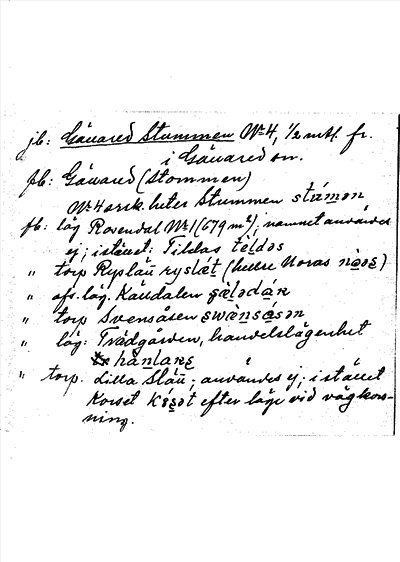 jb: Gåvared Stommen No 4, 1/2 mtl. fr.
i Gåvared sn.
fb: Gåvared (Stommen)
No 4 enk. heter Stummen stúmən
fb: läg Rosendal No 1 (679 m²); namnet användes
ej; i stället: Tildas tèldəs
" torp Ryslätt ryslǽt (heller Noras nòəs)
" afs. läg. Käudalen
" torp Svensåsen swænsåsən
" läg: Trädgården, handelslägenhet
hånlarəs
" torp. Lilla Slätt; användes ej; i stället
Korset efter läge vid vägkors-
ning.